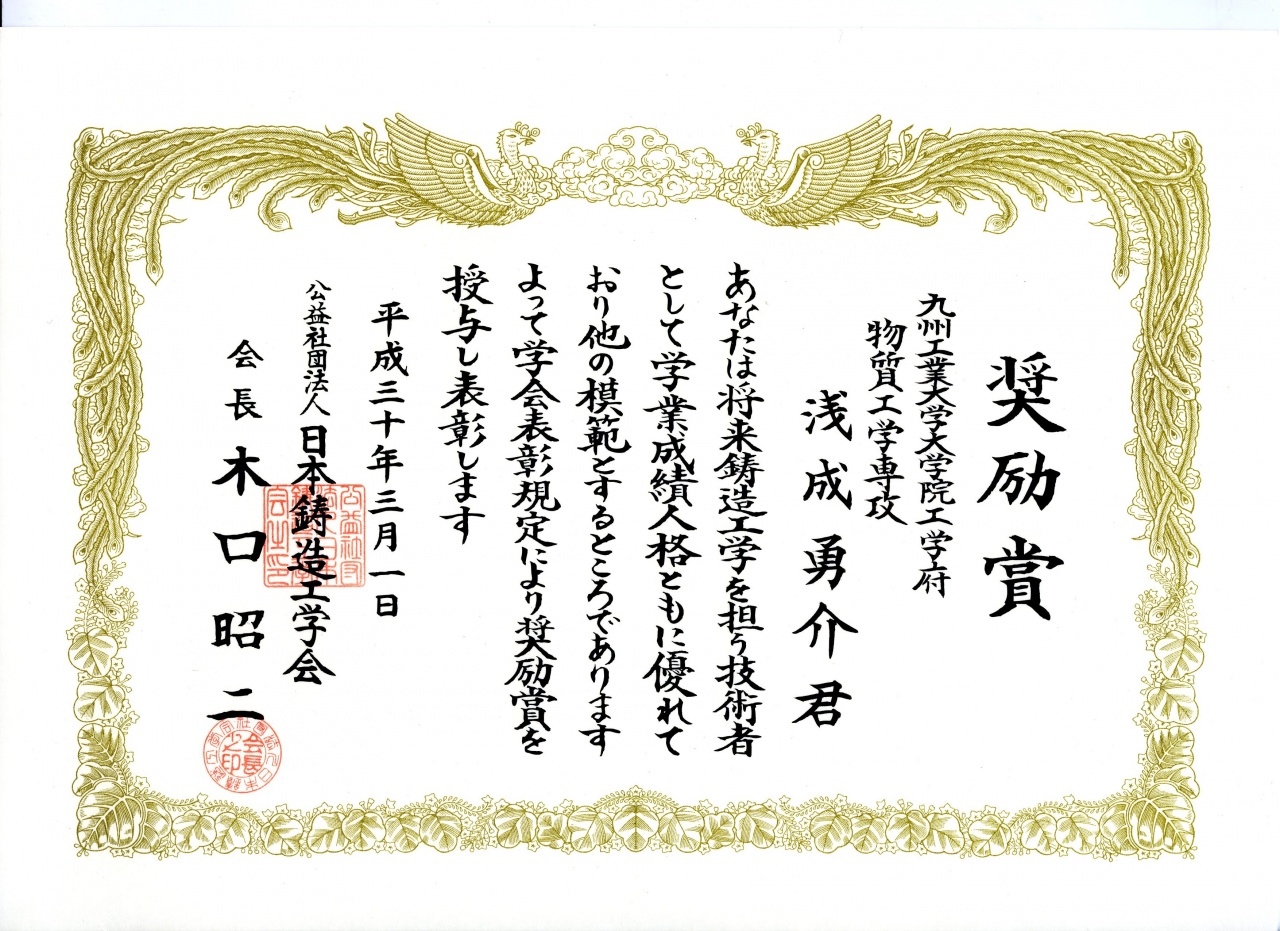 奨励賞
九州工業大学大学院工学府
物質工学専攻
浅成勇介君
あなたは将来鋳造工学を担う技術者
として学業成績人格ともに優れて
おり他の模範とするところであります
よって学会表彰規定により奨励賞を
授与し表彰します
平成三十年三月一日
公益社団法人日本鋳造工学会
会長木口昭二